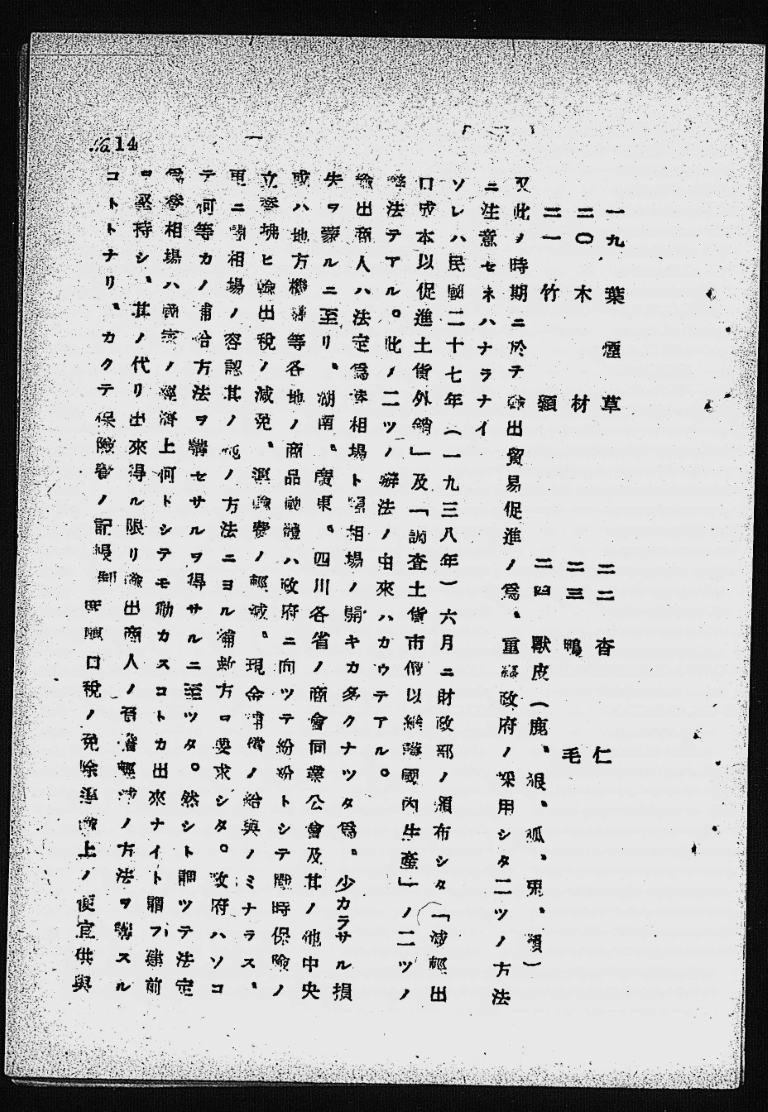 14
一九 葉煙草
二〇 木材
二一 竹類
二二 杏仁
二三 鴨毛
二四 獸皮(鹿、狼、狐、
又此ノ時期ニ於テ輸出貿易促進ノ爲、重慶政府ノ採用シタ二ツノ方法
ニ注意セネハナラナイ
ソレハ民國二十七年(一九三八年)六月ニ財政部ノ頒布シタ「減輕出
口成本以促進土貨外銷」及「調査土貨市價以維護國内生産」ノ二ツノ
辦法テアル。此ノ二ツノ辦法ノ由來ハカウテアル。
輸出商人ハ法定爲替相場ト闇相場ノ開キカ多クナツタ爲、少カラサル損
失ヲ蒙ルニ至リ、湖南、廣東、四川各省ノ商會同業公會及其ノ他中央
或ハ地方機關等各地ノ商品團體ハ政府ニ向ツテ紛紛トシテ戰時保險ノ
立替竝ヒ輸出税ノ減免、運輸費ノ輕減、現金補償ノ給與ノミナラス、
更ニ闇相場ノ容認其ノ他ノ方法ニヨル補助方ヲ要求シタ。政府ハソコ
テ何等カノ補給方法ヲ講セサルヲ得サルニ至ツタ。然シト謂ツテ法定
爲替相場ハ國家ノ經濟上何トシテモ動カスコトカ出來ナイト謂フ建前
ヲ堅持シ、其ノ代リ出來得ル限リ輸出商人ノ負擔輕減ノ方法ヲ講スル
コトトナリ、カクテ保險費ノ記帳制度輸口税ノ免除運輸上ノ便宜供與